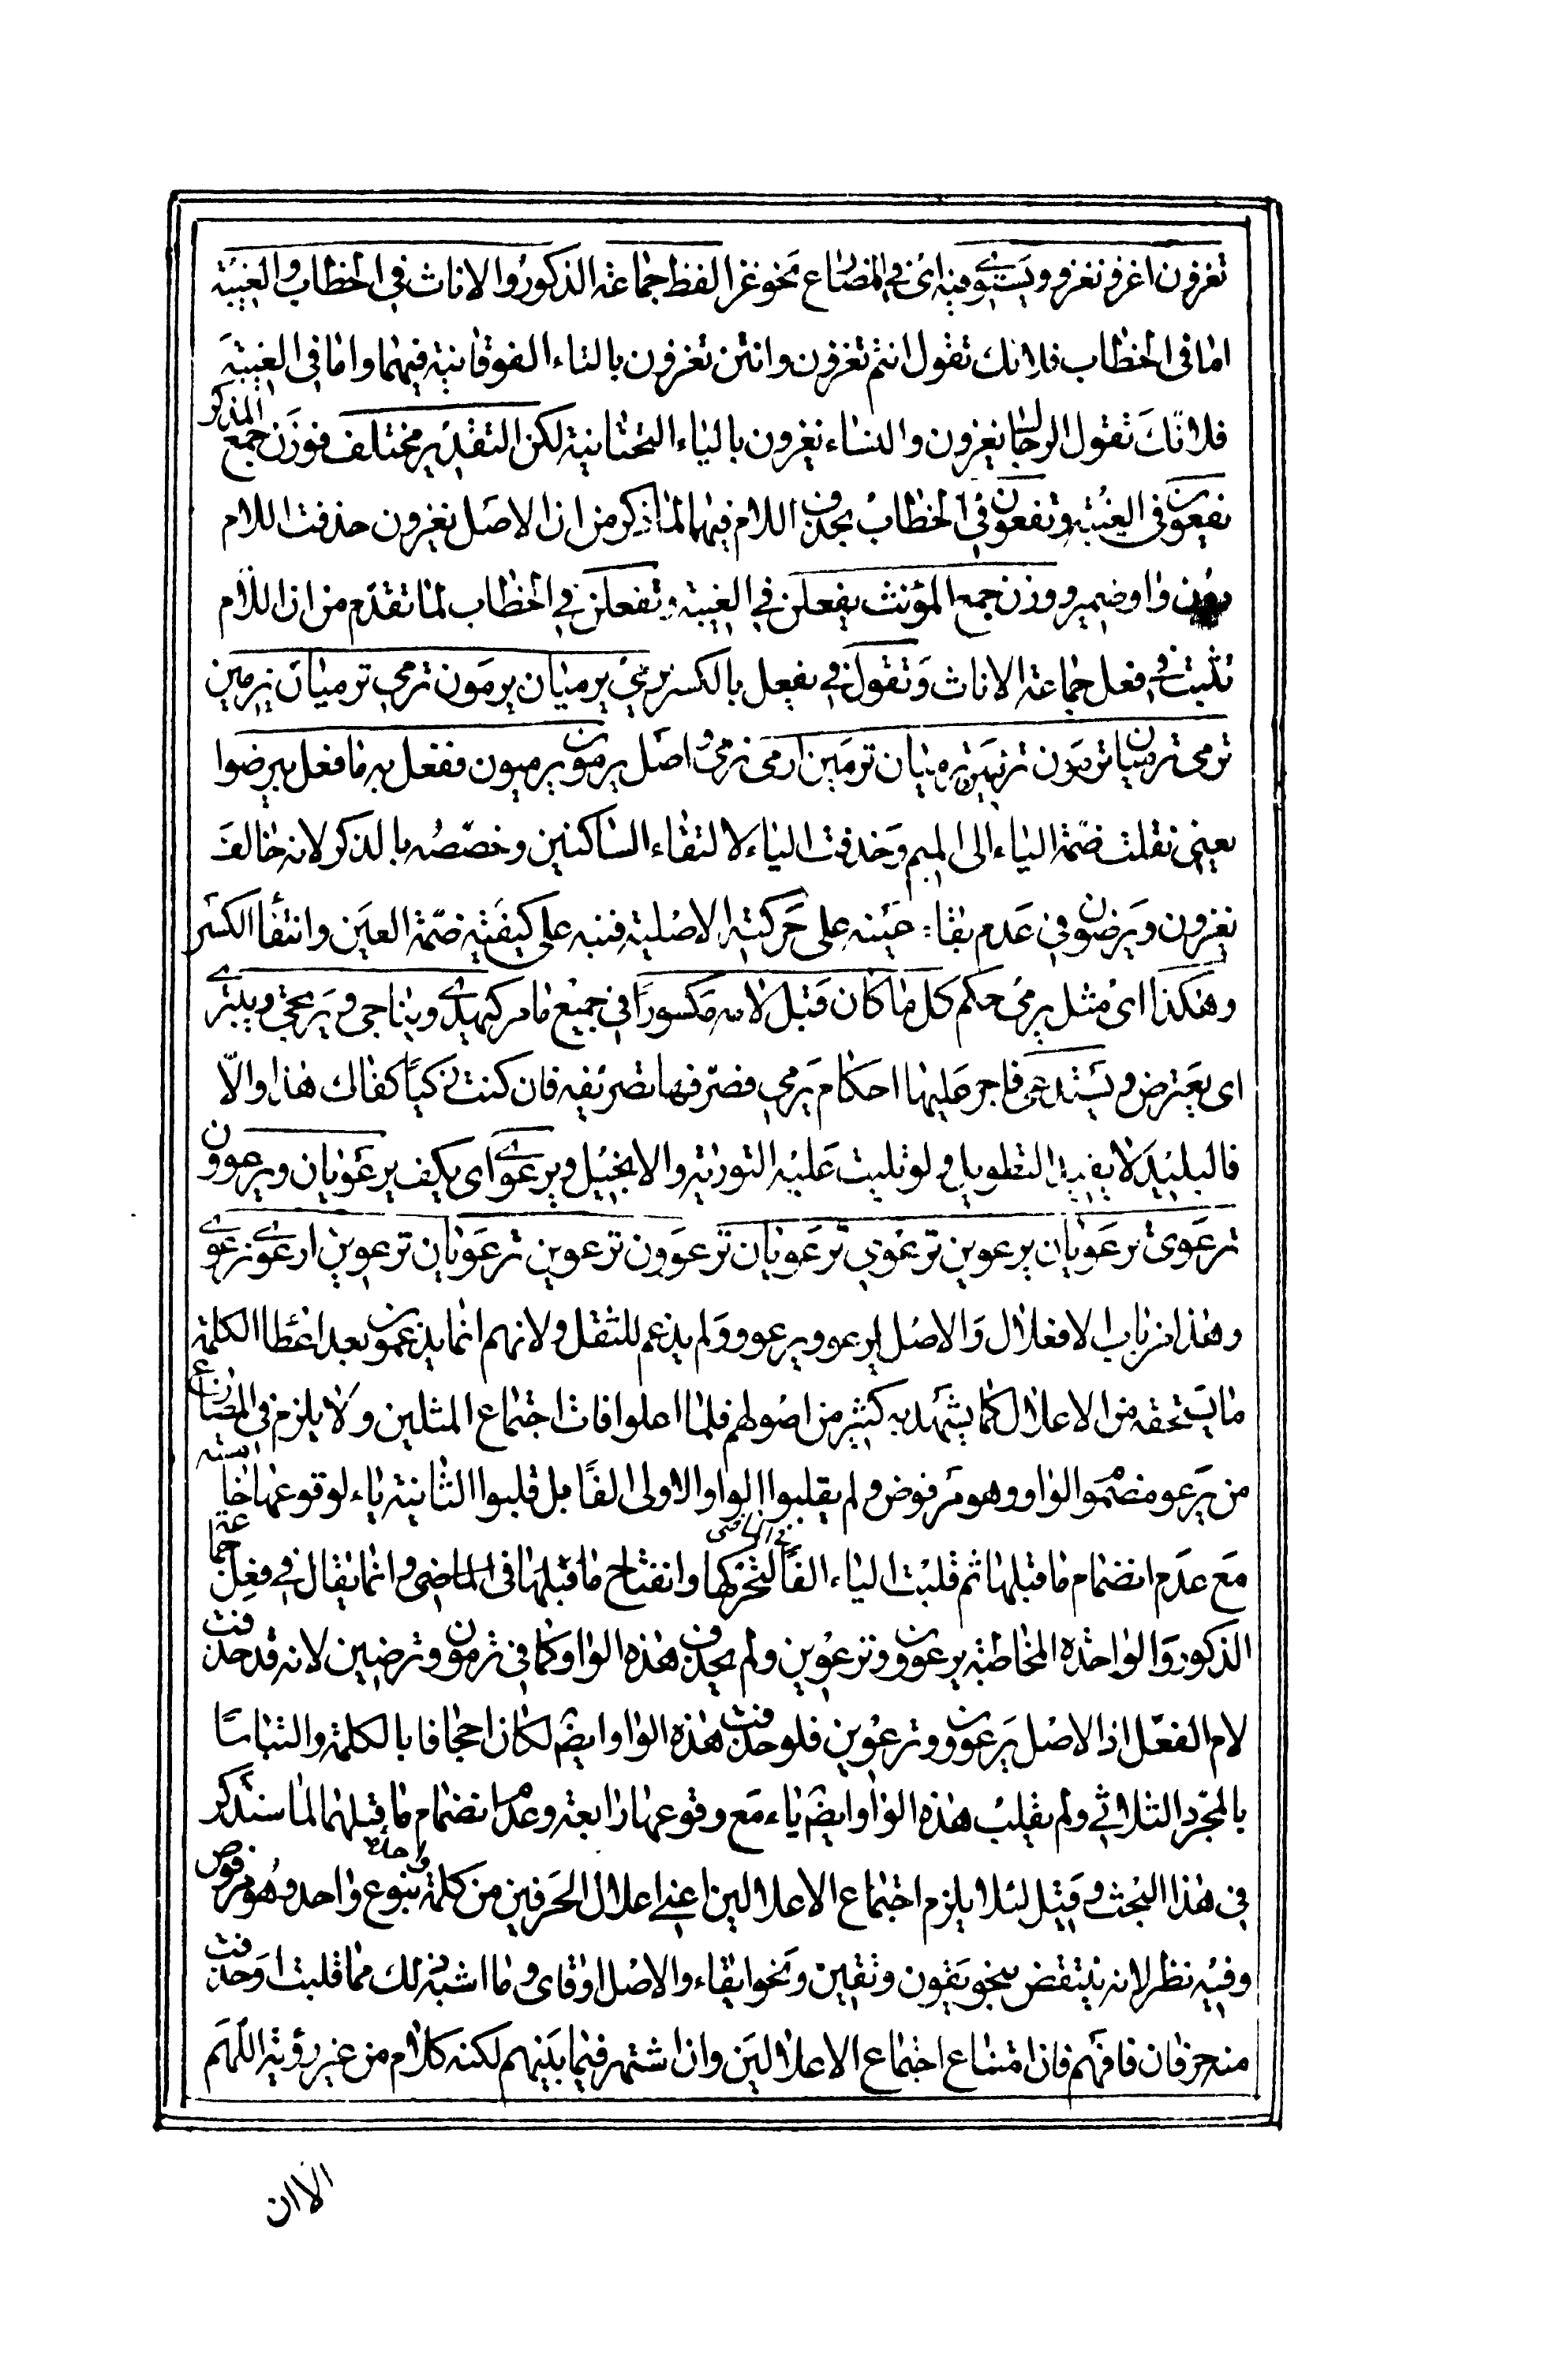 تغزون اغزو نغزو ويستوي فيه اى في المضارع نحو غزا لفظ جماعة الذكور والاناث في الخطاب والغيبة
اما فى الخطاب فلانك تقول انتم تغزون وانتن تغزون بالتاء الفوقانية فيهما واما فى الغيبة
فلانّك تقول الرجال يغزون والنساء يغزون بالياء التحتانية لكن التقدير مختلف فوزن جمع المذكر
يفعون فى الغيبة وتفعون في الخطاب بحذف اللام فيهما لما ذكر من ان الاصل يغزوون حذفت اللام
واو ضمير ووزن جمع المؤنث يفعلن في الغيبة وتفعلن في الخطاب لما تقدم من ان اللام
تثبت في فعل جماعة الاناث وتقول في يفعل بالكسر يرمي يرميان يرمون ترمي ترميان يرمين
ترمى ترميان ترمون ترمين ترميان ترمين ارمى نرمى واصل يرمون يرميون ففعل به ما فعل بيرضوا
يعني نقلت ضمة الياء الى الميم وحذفت الياء لالتقاء الساكنين وخصّصه بالذكر لانه خالف
يغزون ويرضون في عدم بقاء عينه على حركته الاصلية فنبه على كيفية ضمّة العين وانتفاء الكسر
وهكذا اى مثل يرمى حكم كل ما كان قبل لامه مكسوراً في جميع ما مر كيهدي ويناجى ويرتجى وينبرى
اى يعترض ويستدعى فاجر عليها احكام يرمي فصرّفها تصريفه فان كنت ذكياً كفاك هذا والّا
فالبليد لا يفيده التطويل ولو تليت عليه التورية والانجيل ويرعوي اى يكف يرعويان ويرعوون
ترعوى ترعويان يرعوين ترعوي ترعويان ترعوون ترعوين ترعويان ترعوين ارعوي نرعوي
وهذا من باب الافعلال والاصل ارعوو يرعوو ولم يدغم للثقل ولانهم انما يدغمون بعد اعطاء الكلمة
ما يستحقه من الاعلال كما يشهد به كثير من اصولهم فلما اعلوا فات اجتماع المثلين ولئلا يلزم فى المضارع
من يرعو مضموم الواو وهو مرفوض ولم يقلبوا الواو الاولى الفاً بل قلبوا الثانية ياء لوقوعها خامسة
مع عدم انضمام ما قبلها ثم قلبت الياء الفاً لتحركها وانفتاح ما قبلها فى الماضى وانما يقال في فعل جماعة
الذكور والواحدة المخاطبة يرعوون وترعوين ولم يحذف هذه الواو كما في ترمون وترضين لانه قد حذفت
لام الفعل اذ الاصل يرعوون وترعوين فلو حذفت هذه الواو ايضً لكان احجافا بالكلمة والتباسًا
بالمجرد الثلاثي ولم يقلب هذه الواو ايضً ياء مع وقوعها رابعة وعدم انضمام ما قبلها لما سنذكر
في هذا البحث وقيل لئلا يلزم اجتماع الاعلالين اعني اعلال الحرفين من كلمة واحدة بنوع واحد وهو مرفوض
وفيه نظر لانه ينتقض بنحو يقون وتقين ونحو ايقاء والاصل اوقاى وما اشبه ذلك مما قلبت او حذفت
منه حرفان فافهم فان امتناع اجتماع الاعلالين وان اشتهر فيما بينهم لكنه كلام من غير روية اللّهم
الا ان